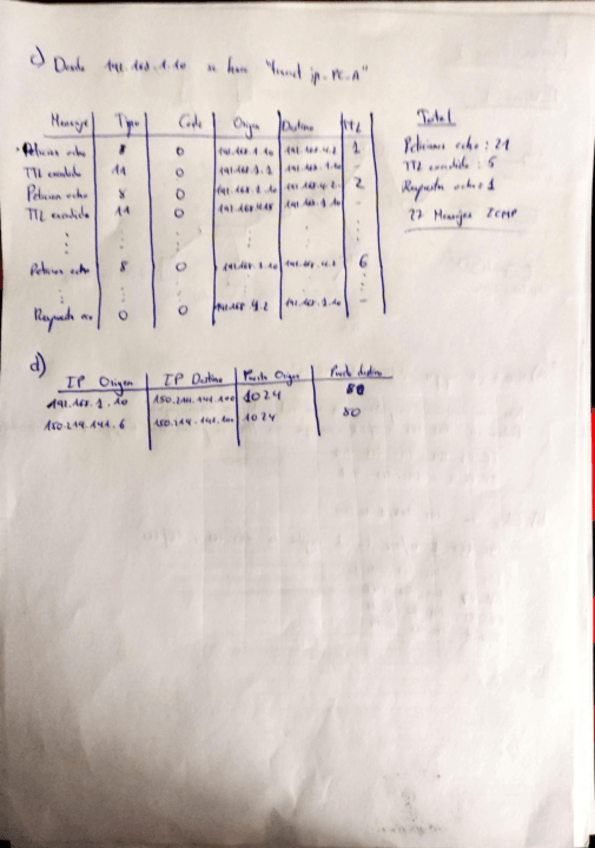 c) Desde 192.168.1.10 se hace "tracert ip-PC-A"
Mensaje Type Code Origen Destino TTL
Peticion echo 8 0 192.168.1.10 192.168.4.2 1
TTL excedido 11 0 192.168.1.1 192.168.1.10 -
Peticion echo 8 0 192.168.1.10 192.168.4.2 2
TTL excedido 11 0 192.168.1.10 -
Peticion echo 8 0 192.168.1.10 192.168.4.2 6
Respuesta 0 0 192.168.4.2 192.168.1.10 -
Total
Peticiones echo: 21
TTL excedido: 5
Respuesta echo: 1
27 Mensajes ICMP
d)
IP Origen IP Destino Puerto Origen Puerto destino
192.168.1.10 150.214.141.100 1024 80
150.214.141.6 150.214.141.100 1024 80